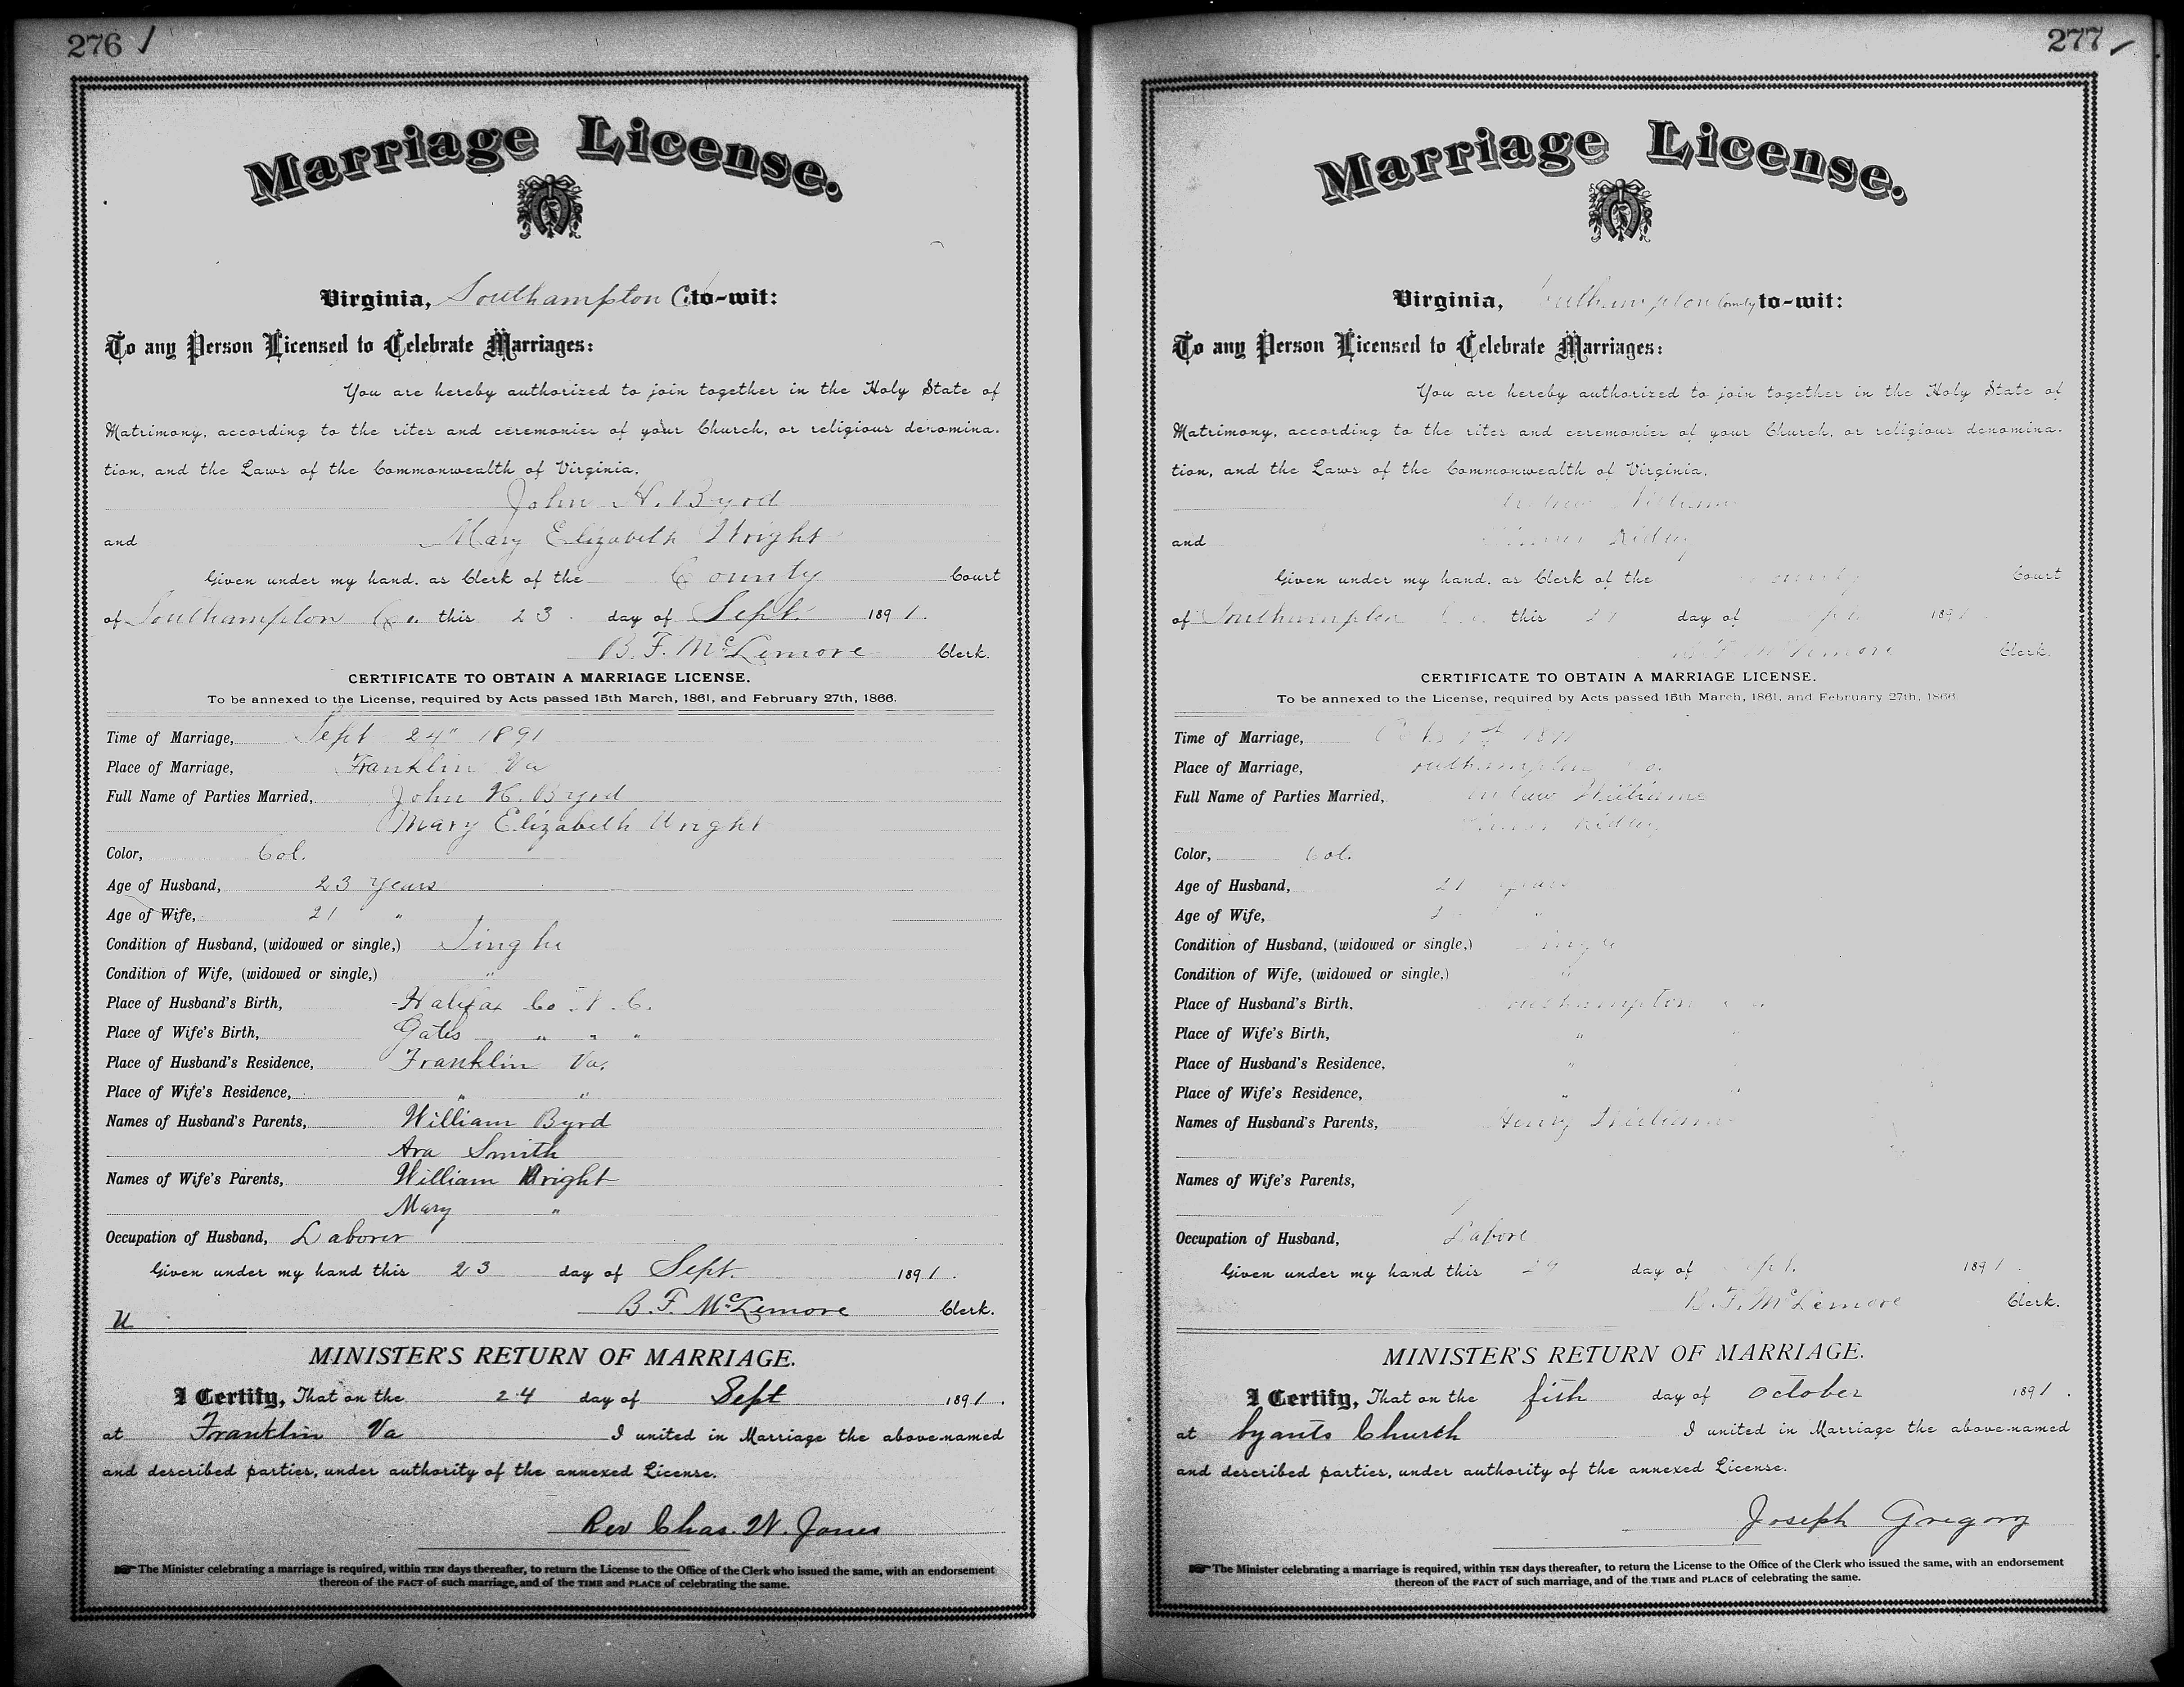 276
Marriage License.
Virginia, Southampton Co to-wit:
To any Person Licensed to Celebrate Marriages:
You are hereby authorized to join together in the Holy State of
Matrimony, according to the rites and ceremonies of your Church, or religious denomina-
tion, and the Laws of the Commonwealth of Virginia.
John H. Byrd
and Mary Elizabeth Wright
Given under my hand, as Clerk of the County Court
of Southampton Co. this 23 day of Sept. 1891.
B. F. McLemore Clerk.
CERTIFICATE TO OBTAIN A MARRIAGE LICENSE.
To be annexed to the License, required by Acts passed 15th March, 1861, and February 27th, 1866.
Time of Marriage, Sept 24" 1891
Place of Marriage, Franklin Va
Full Name of Parties Married, John H. Byrd
Mary Elizabeth Wright
Color, Col.
Age of Husband, 23 years
Age of Wife, 21 "
Condition of Husband, (widowed or single,) Single
Condition of Wife, (widowed or single,) "
Place of Husband's Birth, Halifax Co. N. C.
Place of Wife's Birth, Gates " " "
Place of Husband's Residence, Franklin Va.
Place of Wife's Residence, " "
Names of Husband's Parents, William Byrd
Ara Smith
Names of Wife's Parents, William Wright
Mary "
Occupation of Husband, Laborer
Given under my hand this 23 day of Sept. 1891.
B. F. McLemore Clerk.
MINISTER'S RETURN OF MARRIAGE.
I Certify, That on the 24 day of Sept 1891.
at Franklin Va I united in Marriage the above-named
and described parties, under authority of the annexed License.
Rev Chas. W. Jones
The Minister celebrating a marriage is required, within TEN days thereafter, to return the License to the Office of the Clerk who issued the same, with an endorsement
thereon of the FACT of such marriage, and of the TIME and PLACE of celebrating the same.
277
Marriage License.
Virginia, Southampton County to-wit:
To any Person Licensed to Celebrate Marriages:
You are hereby authorized to join together in the Holy State of
Matrimony, according to the rites and ceremonies of your Church, or religious denomina-
tion, and the Laws of the Commonwealth of Virginia.
Williams
and Ridley
Given under my hand, as Clerk of the County Court
of Southampton Co. this 29 day of Sept 1891
B. F. McLemore Clerk.
CERTIFICATE TO OBTAIN A MARRIAGE LICENSE.
To be annexed to the License, required by Acts passed 15th March, 1861, and February 27th, 1866.
Time of Marriage, 1891
Place of Marriage, Southampton Co.
Full Name of Parties Married, Williams
Ridley
Color, Col.
Age of Husband, 21 years
Age of Wife, "
Condition of Husband, (widowed or single,) Single
Condition of Wife, (widowed or single,) "
Place of Husband's Birth, Southampton Co.
Place of Wife's Birth, " "
Place of Husband's Residence, "
Place of Wife's Residence, " "
Names of Husband's Parents, Henry Williams
Names of Wife's Parents,
Occupation of Husband, Labore
Given under my hand this 29 day of Sept. 1891.
B. F. McLemore Clerk.
MINISTER'S RETURN OF MARRIAGE.
I Certify, That on the day of October 1891.
at Church I united in Marriage the above-named
and described parties, under authority of the annexed License.
Joseph Gregory
The Minister celebrating a marriage is required, within TEN days thereafter, to return the License to the Office of the Clerk who issued the same, with an endorsement
thereon of the FACT of such marriage, and of the TIME and PLACE of celebrating the same.